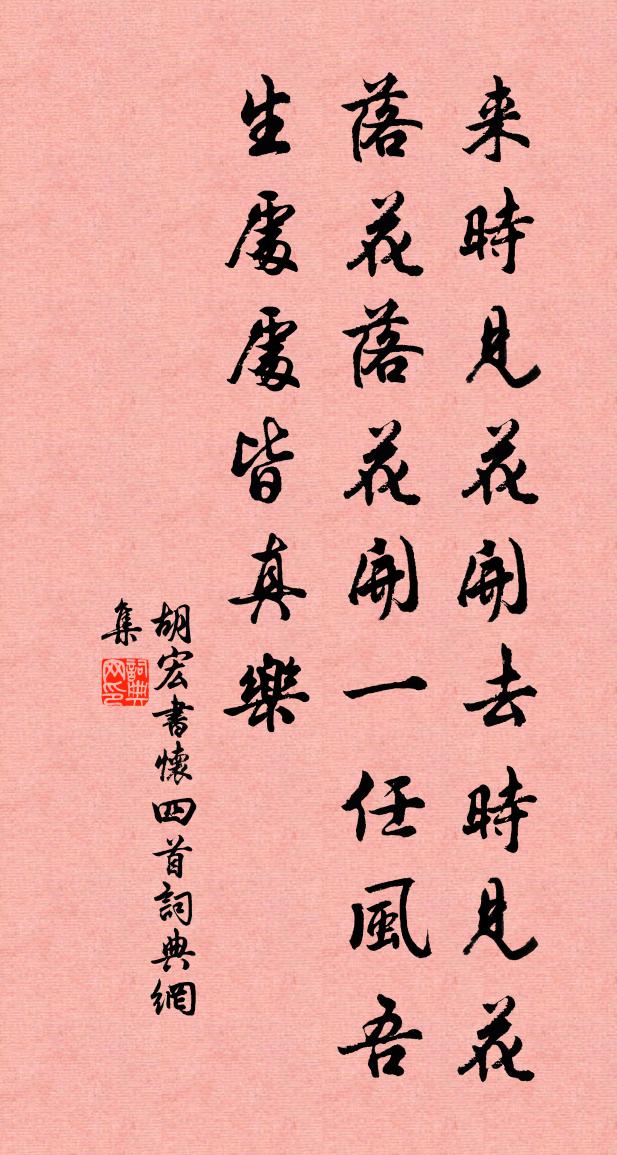 来時見花開去時見花
落花落花開一任風吾
生處處皆真樂
胡宏書懷四首詞典網
集
詞典
网印